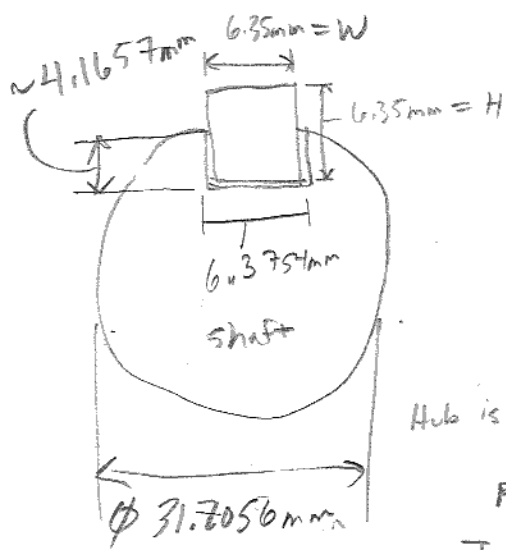 6.35mm = W
~4.1657mm
6.35mm = H
6.3754mm
shaft
Hub is
Ø 31.7056mm